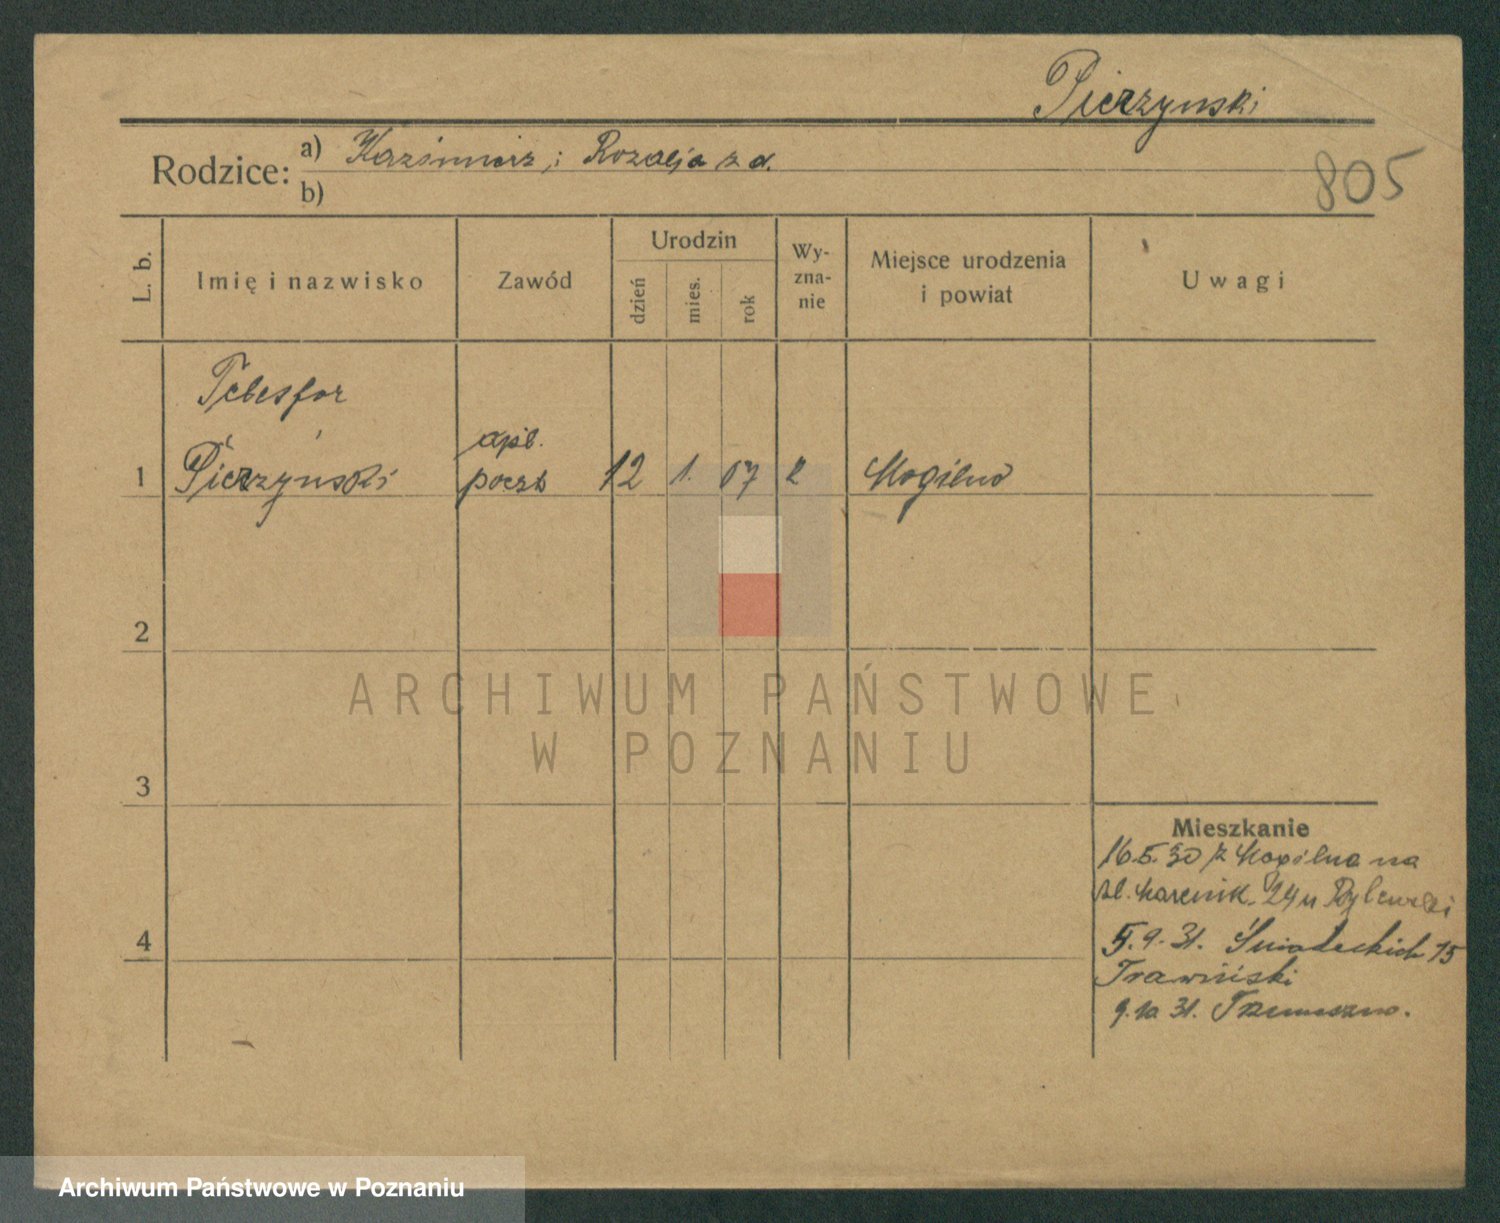 Pierzynski
Rodzice: a) Kazimierz i Rozalja z d.
b)
805
L. b.
Imię i nazwisko
Zawód
Urodzin
dzień
mies.
rok
Wy-
zna-
nie
Miejsce urodzenia
i powiat
Uwagi
Telesfor
apl.
1 Pierzyński poczt 12 1. 07 Mogilno
2
ARCHIWUM PAŃSTWOWE
W POZNANIU
3
Mieszkanie
16.5.30 z Mogilna na
24 u Rylewski
4
5.9.31. Śniadeckich 15
Trawiński
9.10 31. Trzemeszno.
Archiwum Państwowe w Poznaniu